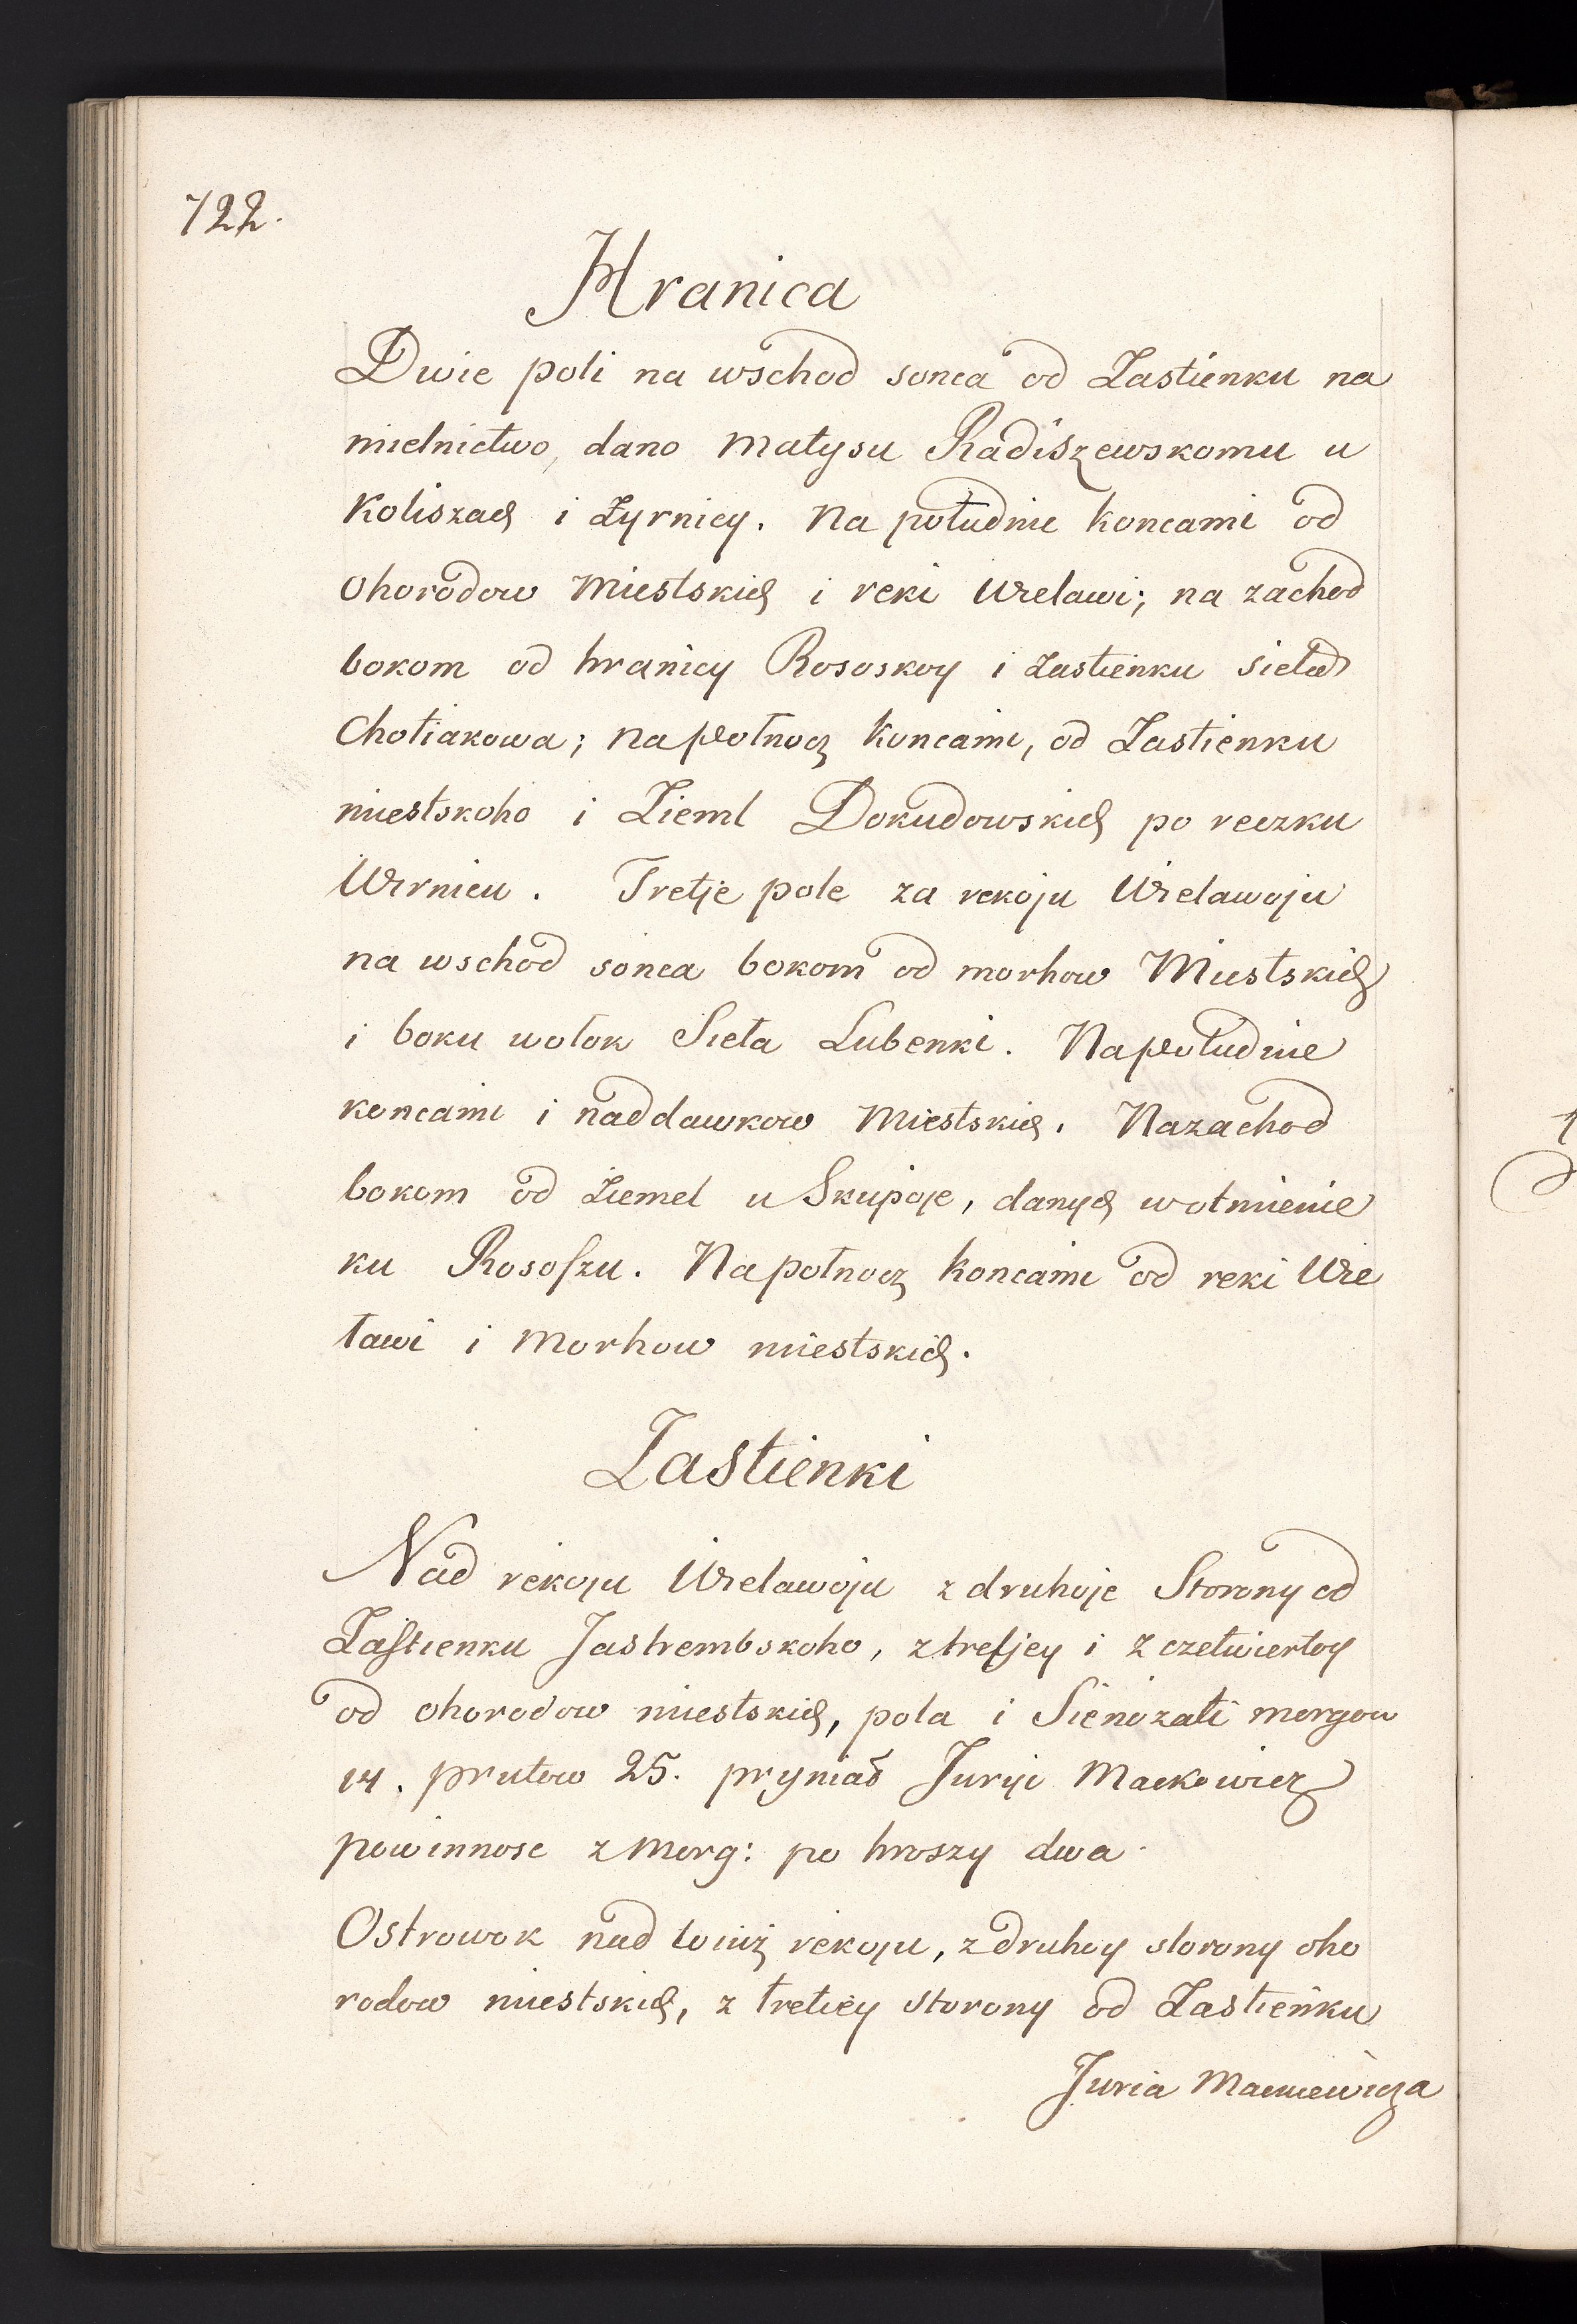 722.
Hranica
Dwie poli na wschod sonca od Zastienku na
mielnictwo, dano Matysu Radiszewskomu u
Koliszach i Żyrnicy. Na południe koncami od
Ohorodow Miestskich i reki Wielawi; na zachod
bokom od hranicy Rososkoy i Zastienku sieła
Chotiakowa; na połnocz koncami, od Zastienku
miestskoho i Zieml Dokudowskich po reczku
Wirnicu. Tretje pole za rekoju Wielawoju
na wschod sonca bokom od morhow Miestskich
i boku wołok Sieła Lubenki. Na południe
koncami i naddawkow Miestskich. Na zachod
bokom od Ziemel u Skupoje, danych wotmienie
ku Rososzu. Na połnocz koncami od reki Wie
ławi i Morhow miestskich.
Zastienki
Nad rekoju Wielawoju z druhoje Storony od
Zastienku Jastrembskoho, z tretjey i z czetwiertoy
od ohorodow miestskich, pola i Sienożati morgow
14. prutow 25. pryniał Juryi Mackowicz
powinnosc z Morg: po hroszy dwa
Ostrowok nad toiuż rekoju, z druhoy storony oho
rodow miestskich, z tretiey storony od Zastienku
Juria Mackiewicza